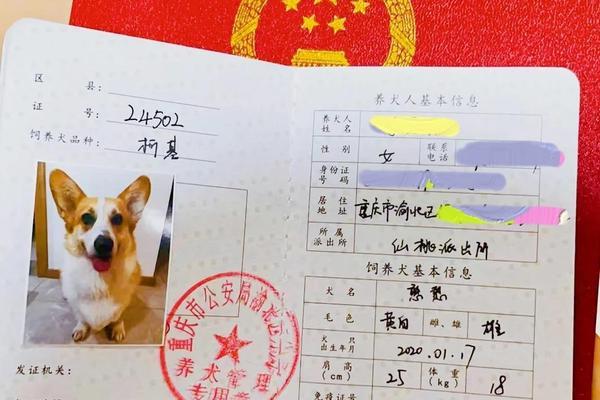 区 县：
证 号： 24502
饲养犬品种： 柯基
发证机关：
重庆市公安局渝北区分局
养犬管理
专用章
养犬人基本信息
养犬人姓名
性别 女 联系电话
身份证号码
居住地址 重庆市渝北区
所属派出所 仙桃派出所
饲养犬基本信息
犬名 憨憨
毛色 黄白 雌、雄 雄
犬只出生年月 2020.01.17
肩高(cm) 25 体重(kg) 18
免疫证号